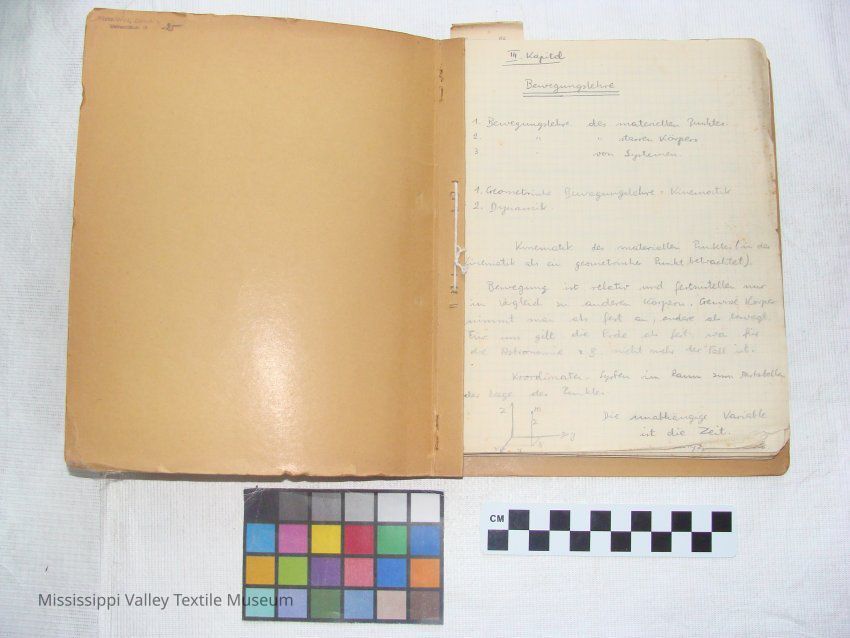 III. Kapitel
Bewegungslehre
1. Bewegungslehre des materiellen Punktes
2. " " starren Körpers
3 " von Systemen.
1. Geometrische Bewegungslehre = Kinematik
2. Dynamik
Kinematik des materiellen Punktes (in der
Kinematik als ein geometrischer Punkt betrachtet).
Bewegung ist relativ und festzustellen nur
im Vergleich zu anderen Körpern. Gewisse Körper
nimmt man als fest an, andere als bewegt.
Für uns gilt die Erde als fest, was für
die Astronomie z.B. nicht mehr der Fall ist.
Koordinaten-System im Raum zum
der Lage des Punktes.
z m
z
y
x
Die unabhängige Variable
ist die Zeit.
CM
Mississippi Valley Textile Museum